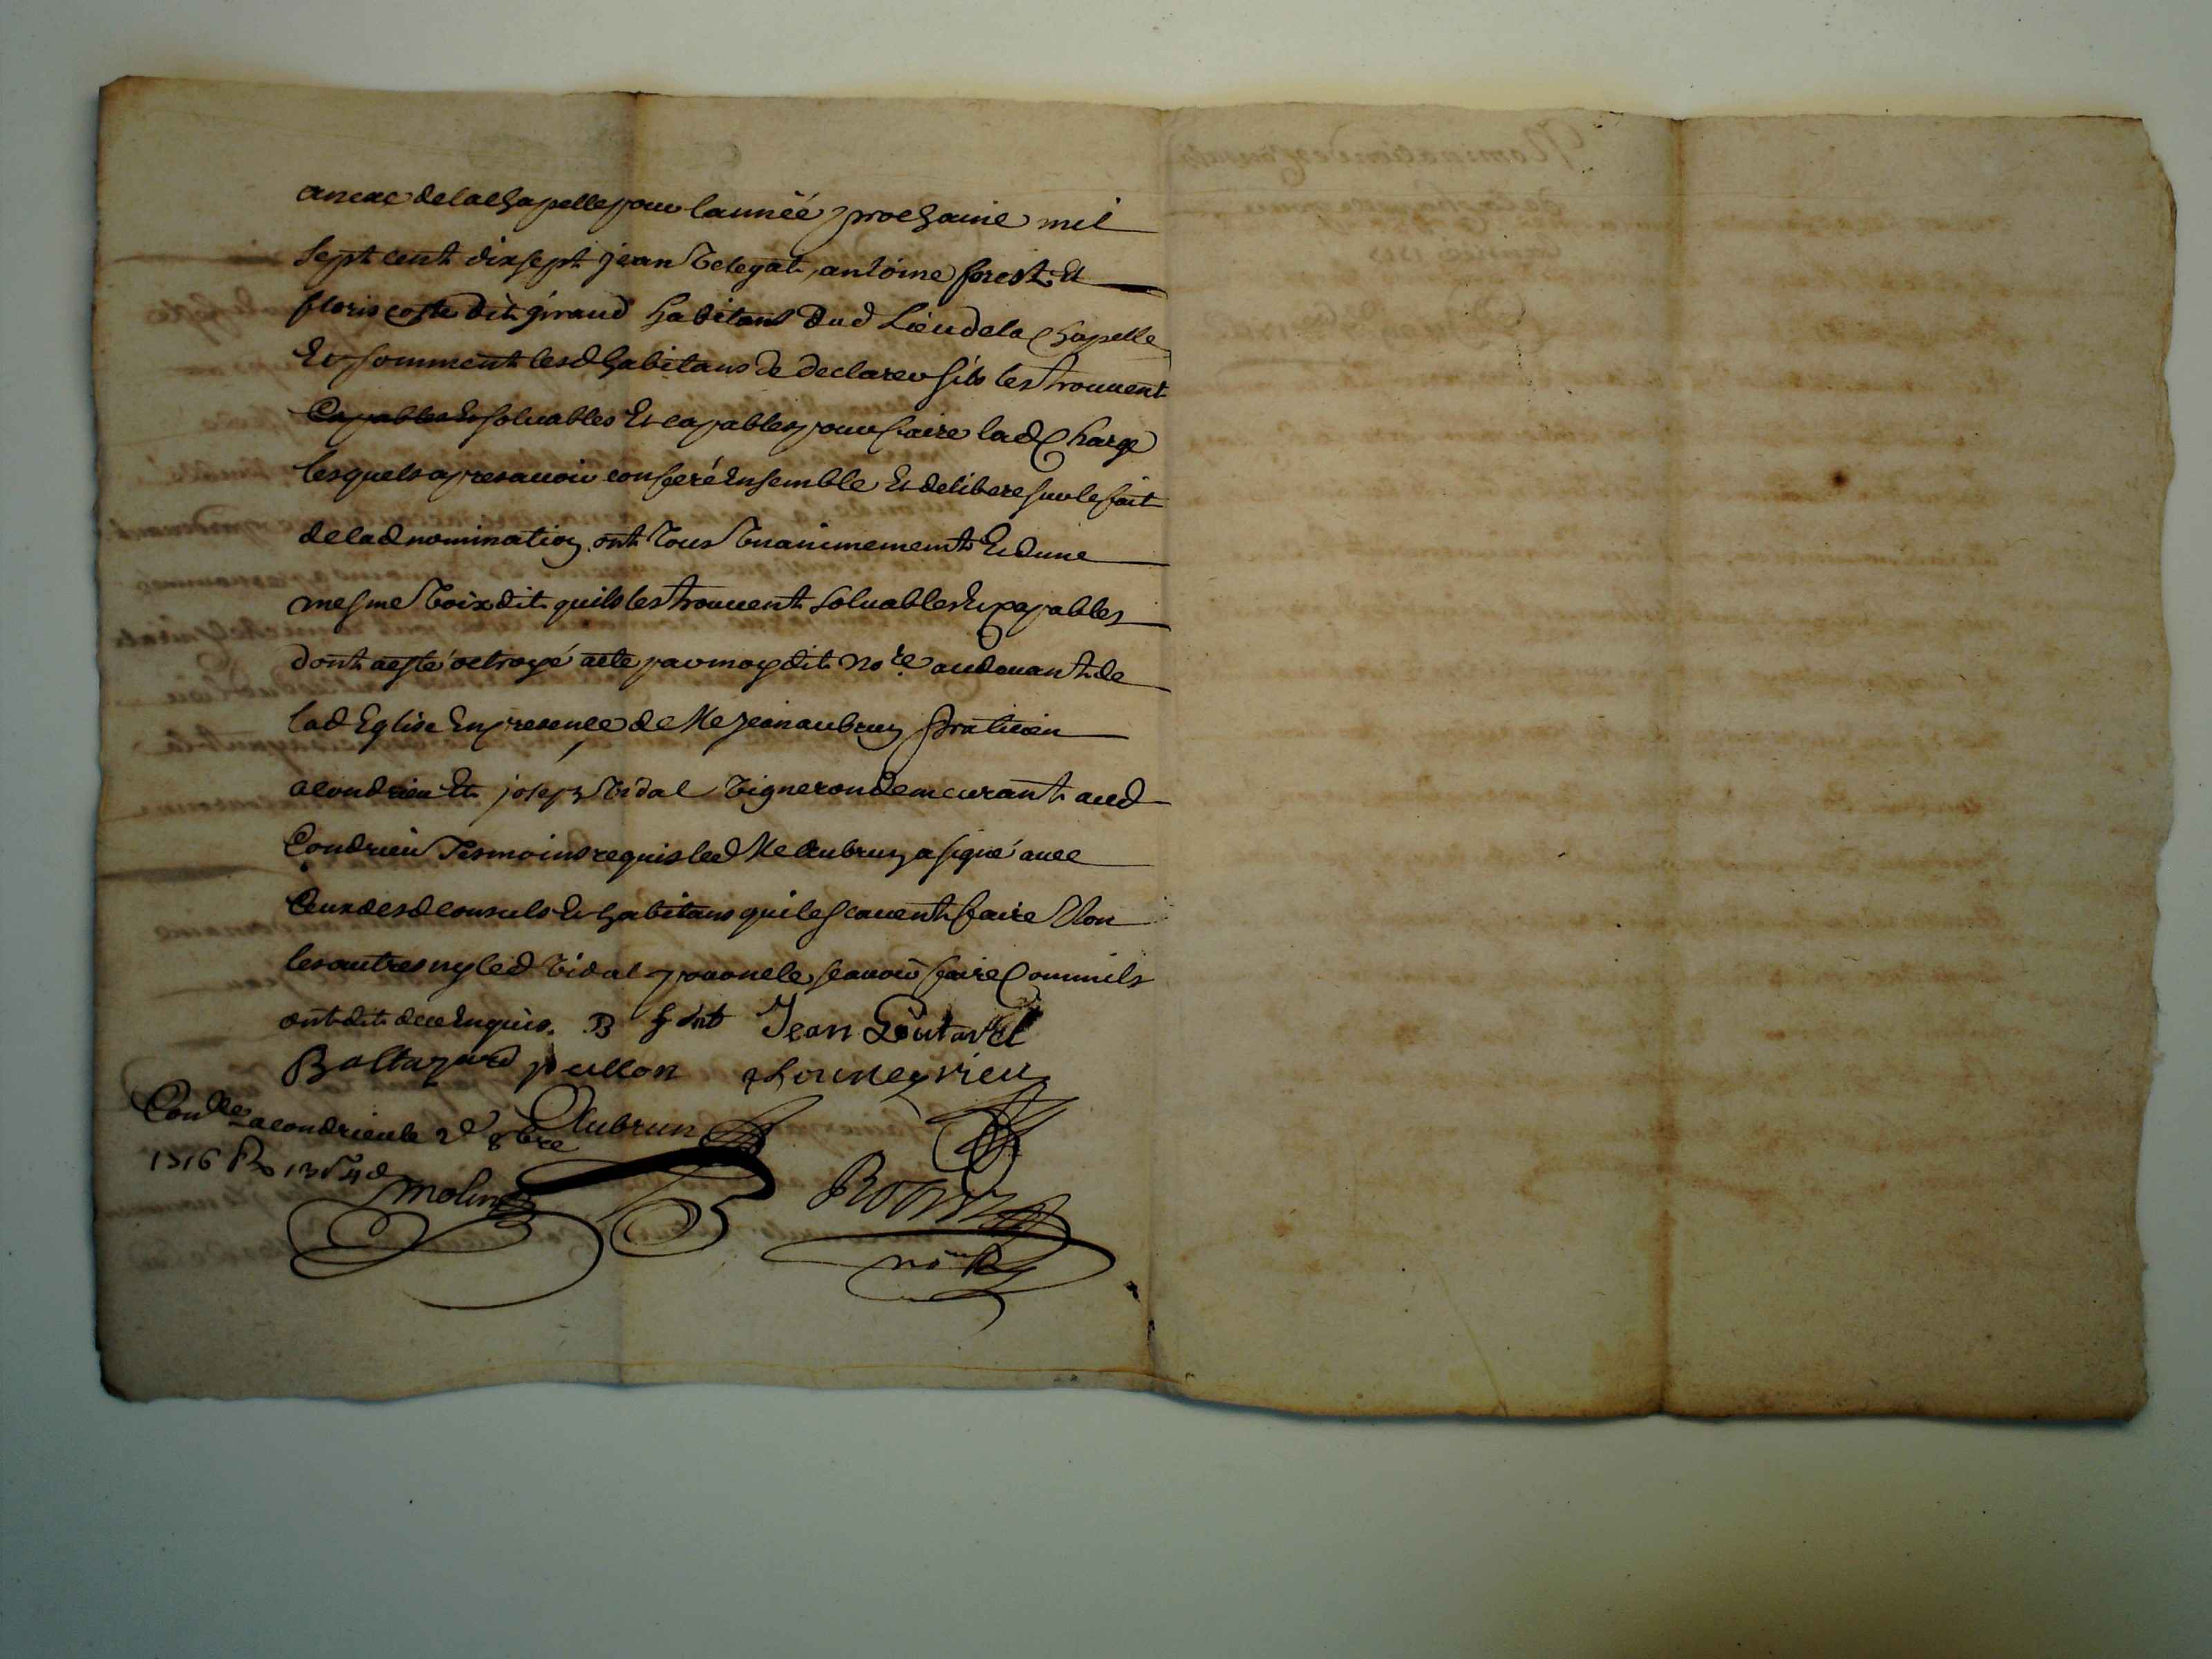 annexe de la chapelle pour lannéé prochaine mil
sept cent dixsept jean Velegat, antoine forest Et
floris coste dit giraud habitans dud Lieu de la Chapelle
Et somment lesd habitans de declarer sils les trouuent
Capables Et soluables Et capables pour faire lad Charge
lesquels apres auoir conferé Ensemble Et delibere sur le fait
de lad nomination ont tous Vnanimement Et dune
mesme Voix dit quils les trouuent soluables Et capables
dont aesté octroyé acte par moy dit no.re audeuant de
lad Eglise En presence de Me jean aubrun praticien
a Condrieu Et joseph Vidal Vigneron demeurant aud
Condrieu Tesmoins requis led Me Aubrun a signé auec
Ceux desd consuls Et habitans qui le scauent faire Non
les autres ny led Vidal pour ne le scauoir faire Comm ils
ont dit de ce Enquis. Jean
Baltazard pullon
Conllé a Condrieu le 2d 8bre Aubrun
1716 R 13 s 4 d
molin
nore